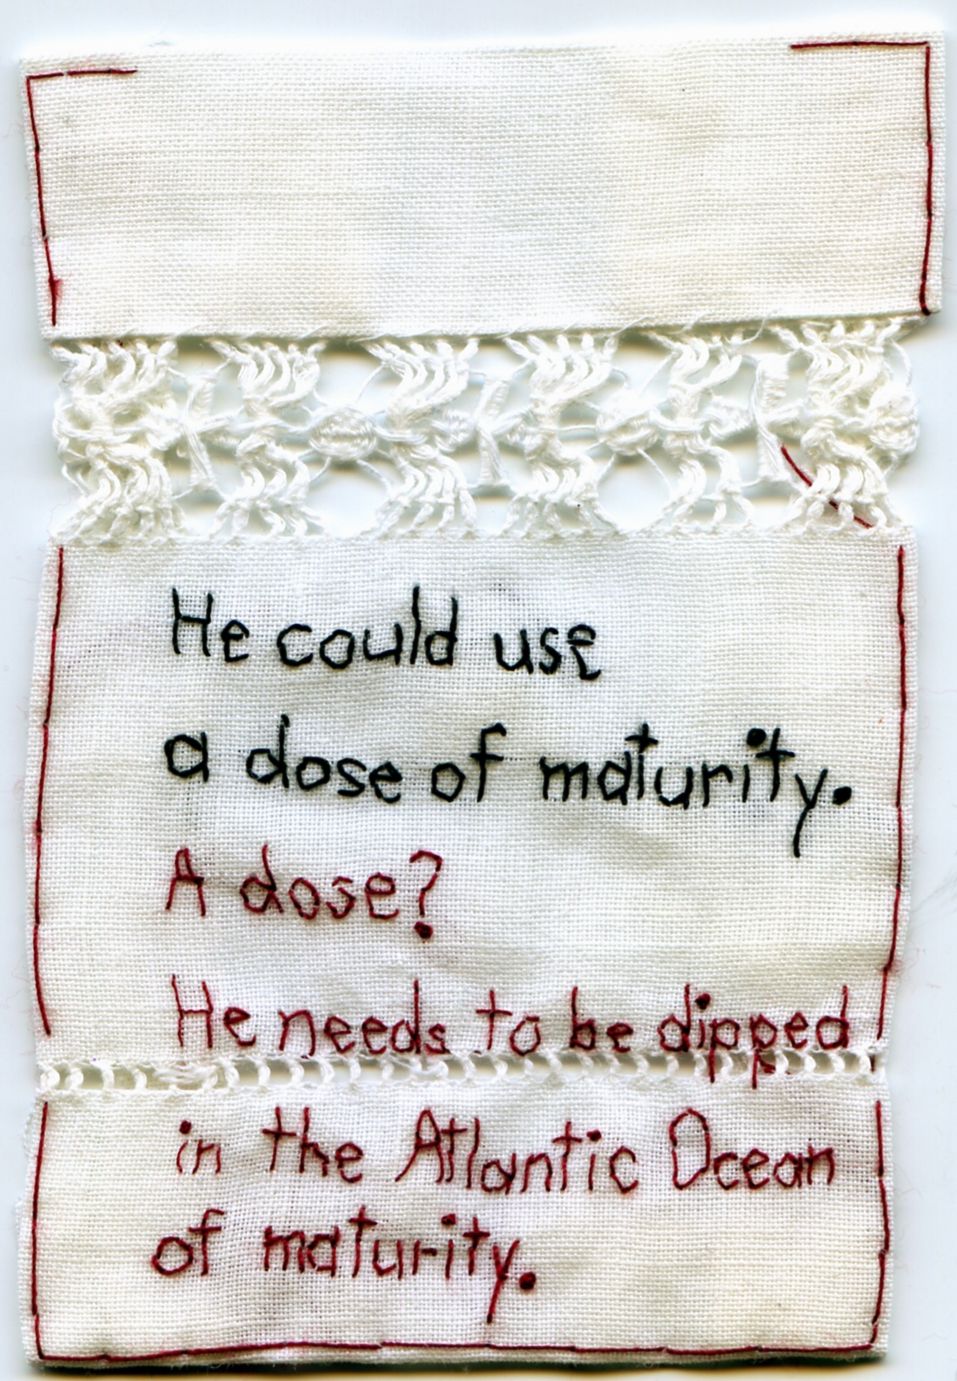 He could use
a dose of maturity.
A dose?
He needs to be dipped
in the Atlantic Ocean
of maturity.